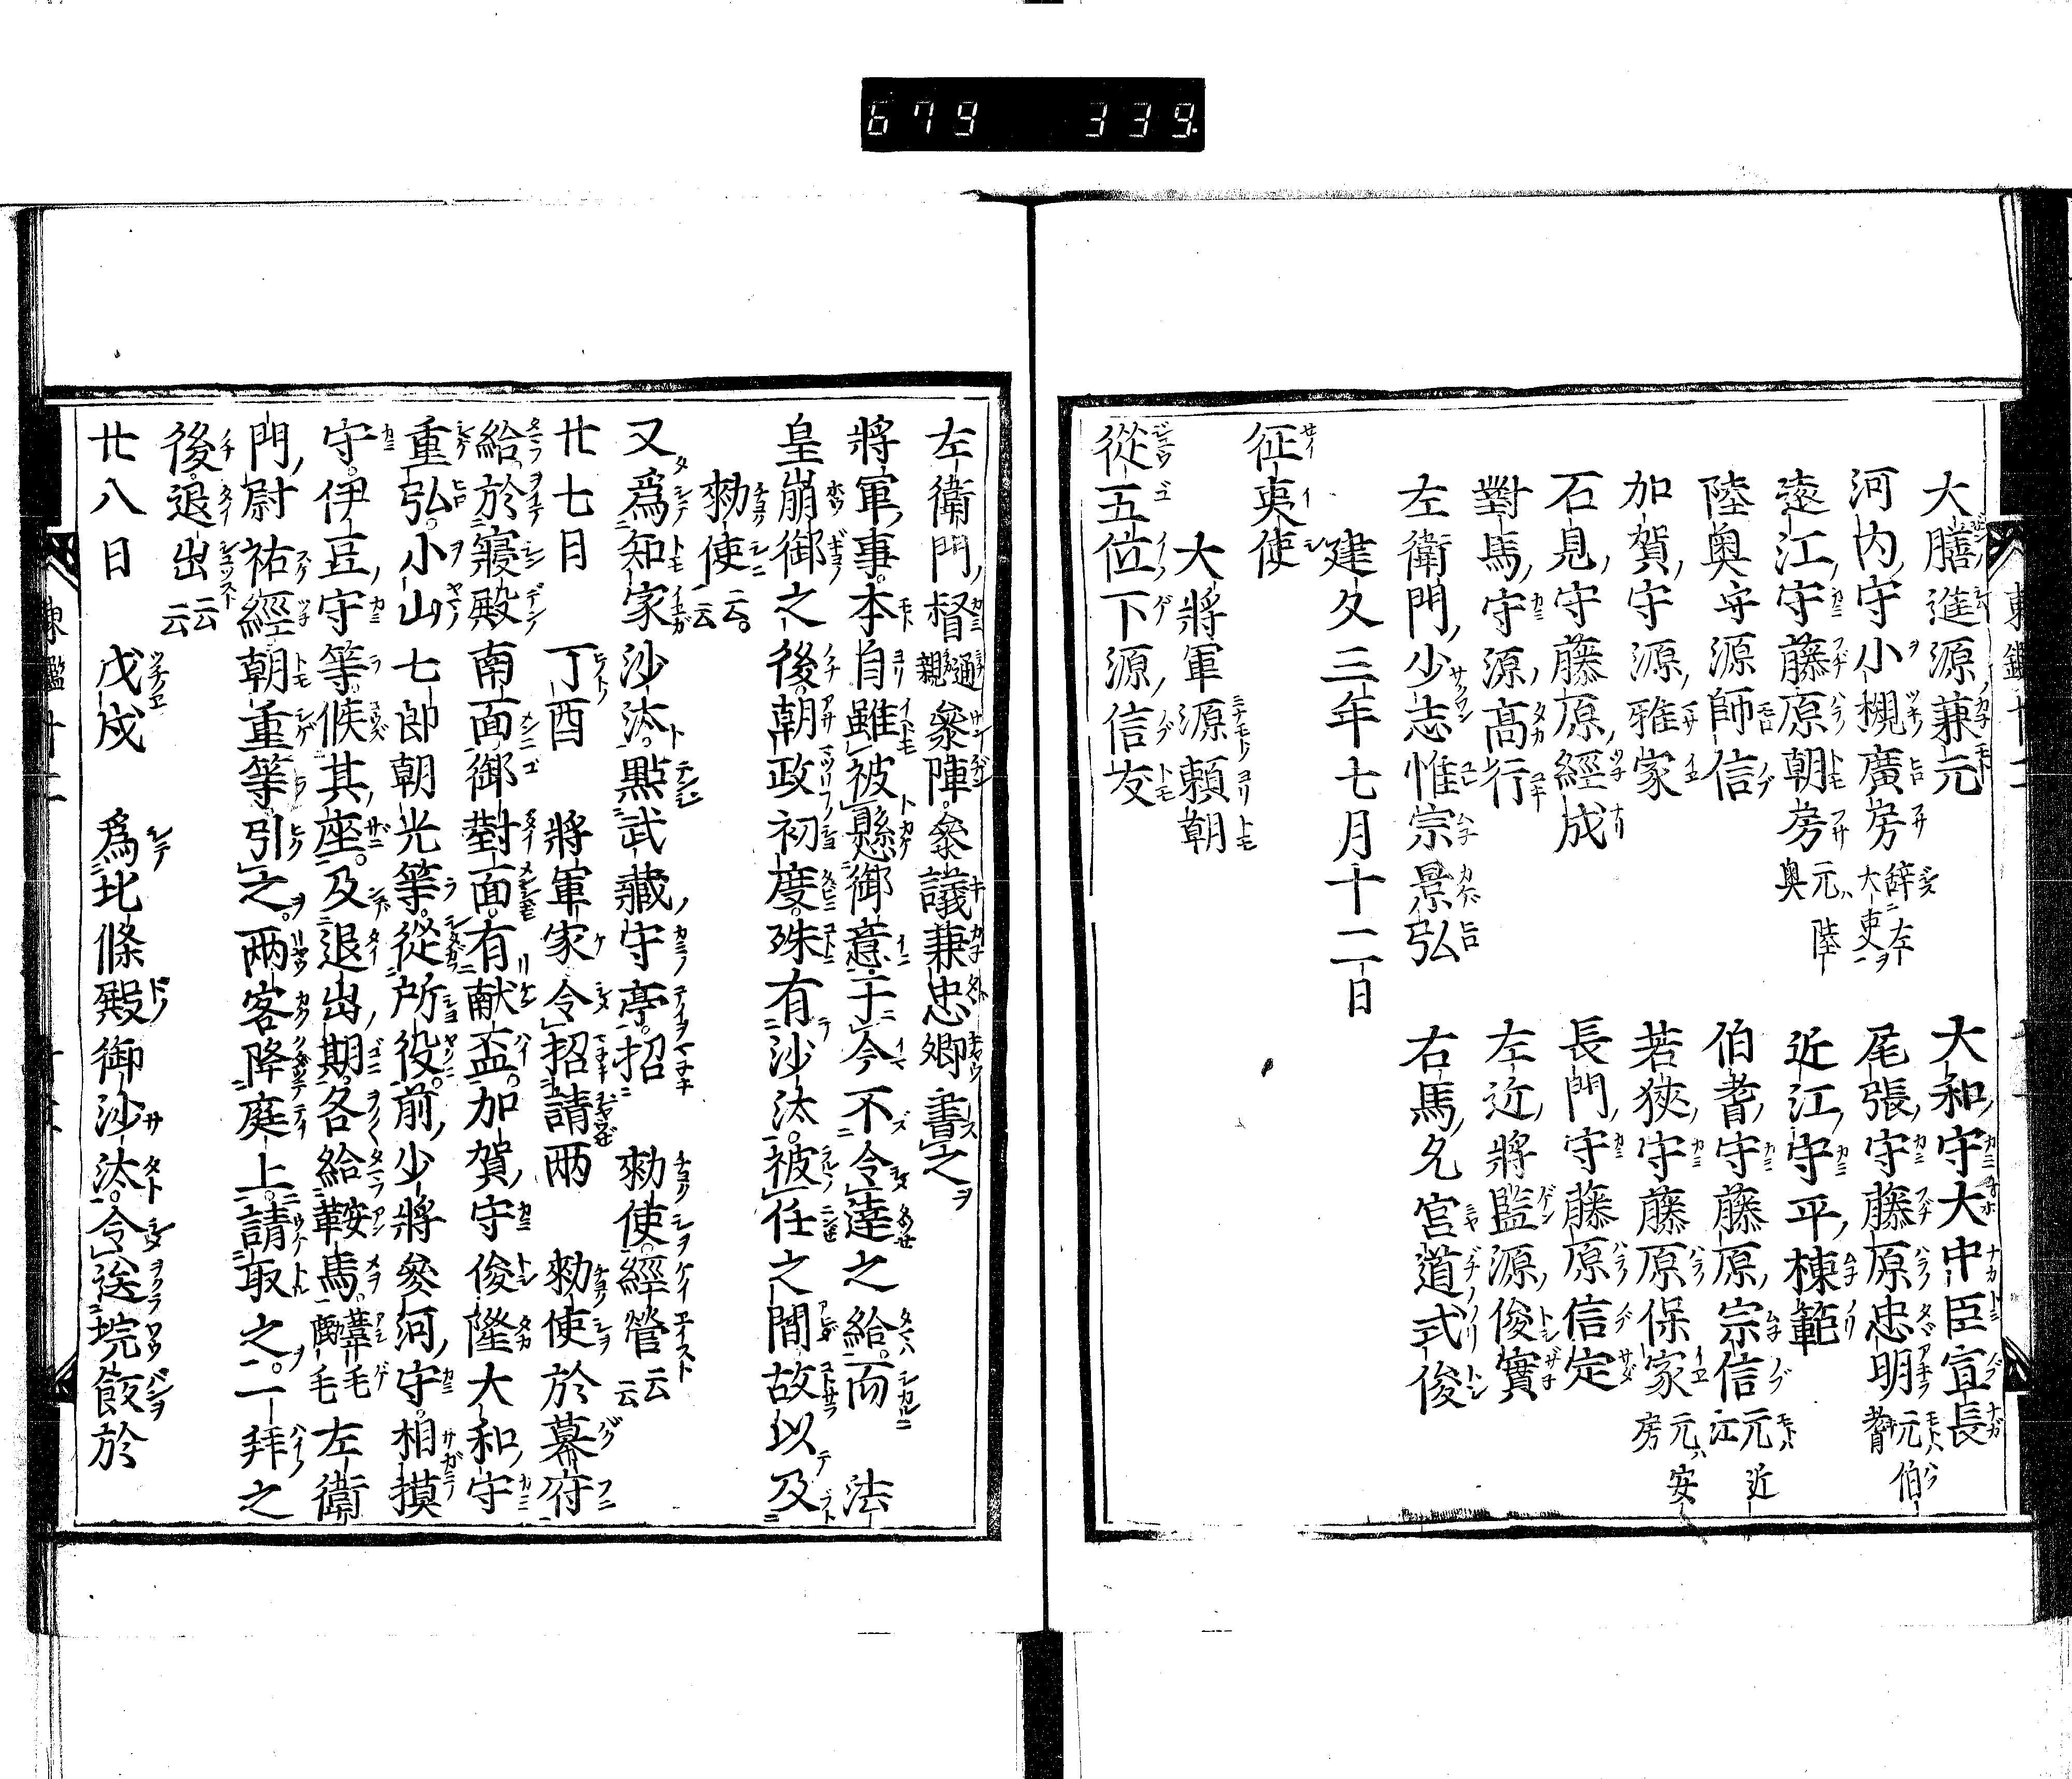 679 339
大膳進源兼元 大和守大中臣宣長
河内守小槻廣房 辞左大史 尾張守藤原忠明 元伯耆
遠江守藤原朝房 元陸奥 近江守平棟範
陸奥守源師信 伯耆守藤原宗信 元近江
加賀守源雅家 若狹守藤原保家 元安房
石見守藤原經成 長門守藤原信定
對馬守源高行 左近將監源俊實
左衛門少志惟宗景弘 右馬允宮道式俊
建久三年七月十二日
征夷使
大將軍源頼朝
從五位下源信友
左衛門督 通親 參陣參議兼忠卿書之
將軍事本自雖被懸御意于今不令達之給而 法
皇崩御之後朝政初度殊有沙汰被任之間故以及
勅使云云
又爲知家沙汰點武藏守亭招 勅使經營云云
廿七日 丁酉 將軍家令招請兩 勅使於幕府
給於寢殿南面御對面有献盃加賀守俊隆大和守
重弘小山七郎朝光等從所役前少將參河守相摸
守伊豆守等候其座及退出期各給鞍馬 葦毛 鴾毛 左衛
門尉祐經朝重等引之兩客降庭上請取之一拜之
後退出云云
廿八日 戊戌 爲北條殿御沙汰令送埦飯於